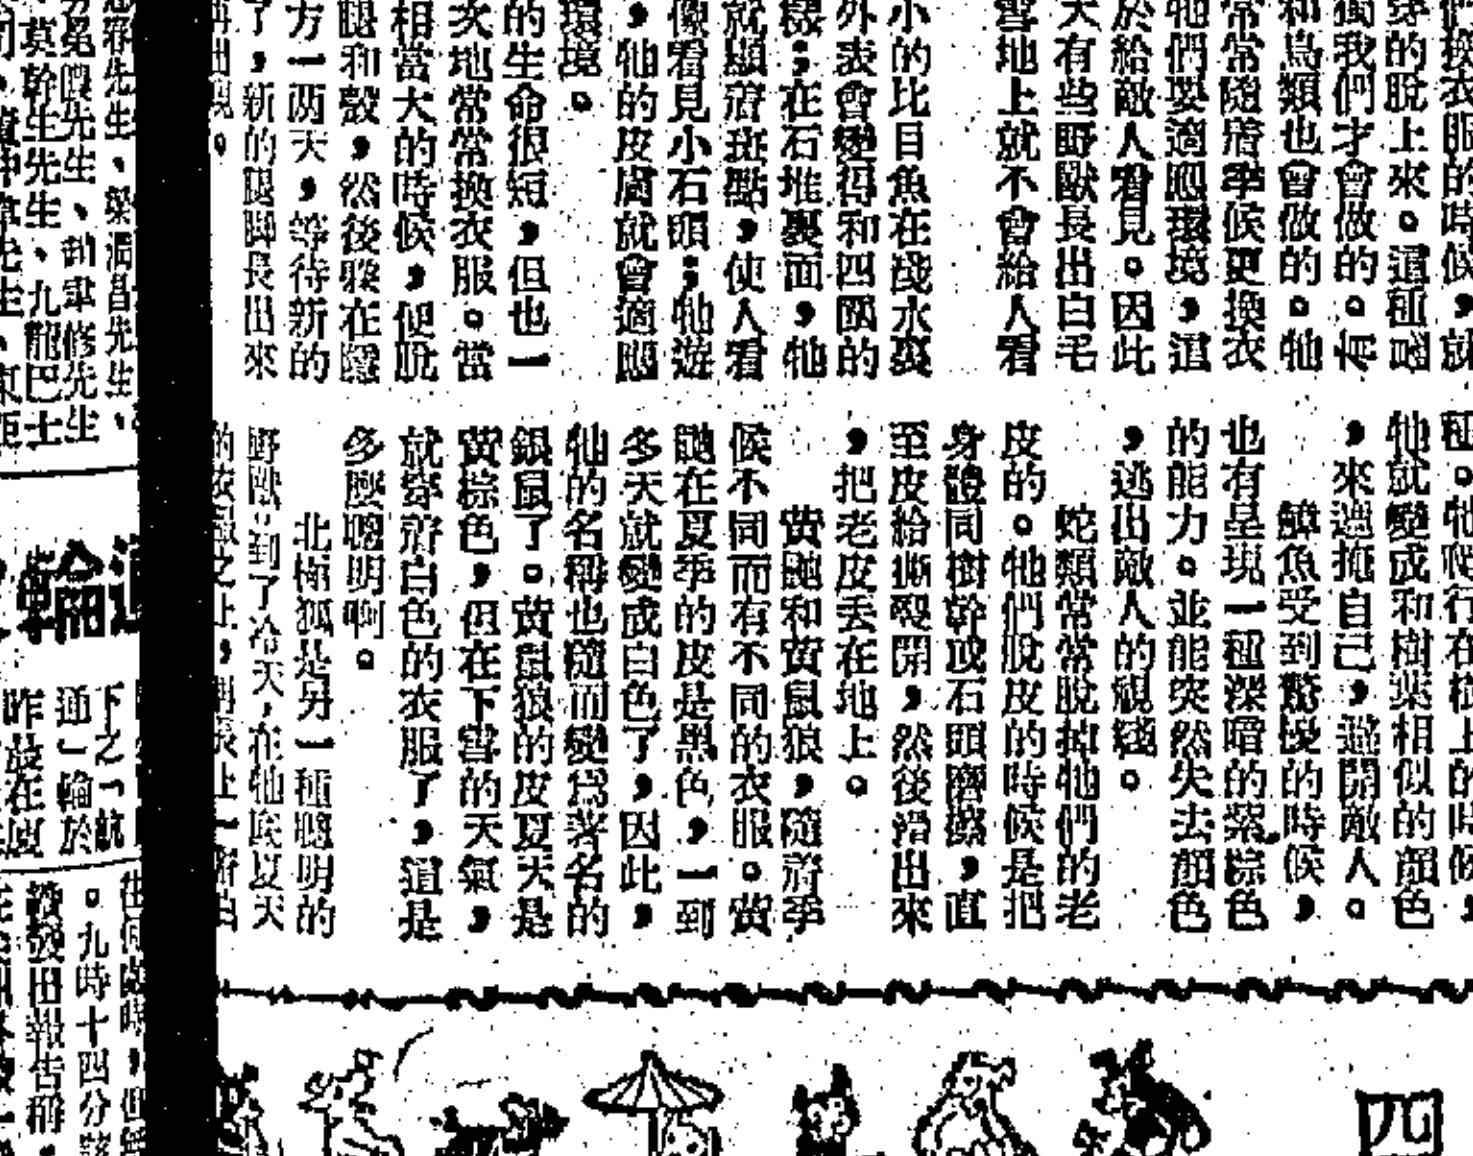 們換衣服的時候，就
穿的脫上來。這種
獨我們才會做的。有
和鳥類也會做的。牠
常常隨着季候更換衣
牠們要適應環境，這
於給敵人看見。因此
天有些野獸長出白毛
雪地上就不會給人看
小的比目魚在淺水裏
外表會變得和四圍的
樣；在石堆裏面，牠
就顯着斑點，使人看
像看見小石頭；牠遊
，牠的皮膚就會適應
環境。
的生命很短，但也一
次地常常換衣服。當
相當大的時候，便脫
腿和殼，然後躲在隱
方一两天，等待新的
了，新的腿脚長出來
再出現。
種。牠爬行在樹上的時候，
牠就變成和樹葉相似的顏色
，來遮掩自己，避開敵人。
鱆魚受到驚擾的時候，
也有呈現一種深暗的紫棕色
的能力。並能突然失去顏色
，逃出敵人的視綫。
蛇類常常脫掉牠們的老
皮的。牠們脫皮的時候是把
身體同樹幹或石頭磨擦，直
至皮給撕裂開，然後滑出來
，把老皮丢在地上。
黄鼬和黄鼠狼，隨着季
候不同而有不同的衣服。黄
鼬在夏季的皮是黑色，一到
冬天就變成白色了，因此，
牠的名稱也隨而變爲著名的
銀鼠了。黄鼠狼的皮夏天是
黄棕色，但在下雪的天氣，
就穿着白色的衣服了，這是
多麼聰明啊。
北極狐是另一種聰明的
野獸，到了冷天，在牠底夏天
先生、梁潤昌先生、
先生、劉韋修先生
莫幹生先生、九龍巴士
輪
下之「航
通」輪於
昨晨在
。九時十四分
發田報告稱
四